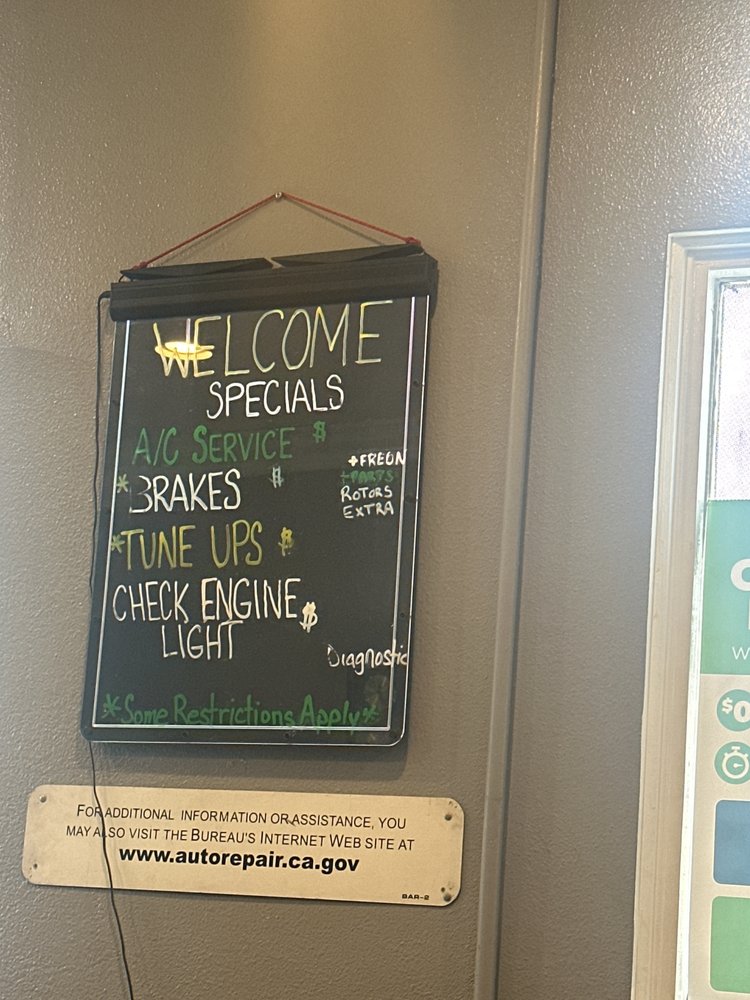 WELCOME
SPECIALS
A/C SERVICE $
+FREON
*BRAKES $
+PARTS
ROTORS
EXTRA
*TUNE UPS $
CHECK ENGINE $
LIGHT
Diagnostic
*Some Restrictions Apply*
FOR ADDITIONAL INFORMATION OR ASSISTANCE, YOU
MAY ALSO VISIT THE BUREAU'S INTERNET WEB SITE AT
www.autorepair.ca.gov
BAR-2
$0